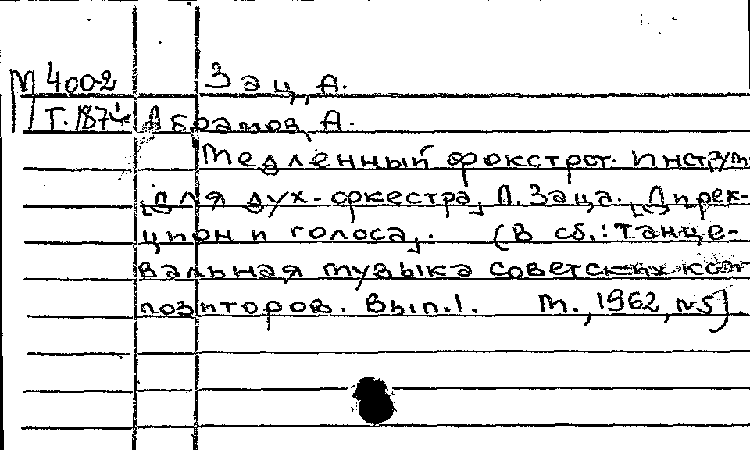 М 4002 Зац, А.
Г.1874 Абрамов, А.
Медленный фокстрот. Инструм.
[для дух. оркестра] А. Заца. [Дирек-
цион и голоса]. (В сб.: Танце-
вальная музыка советских ком-
позиторов. Вып. 1. М., 1962, №5).